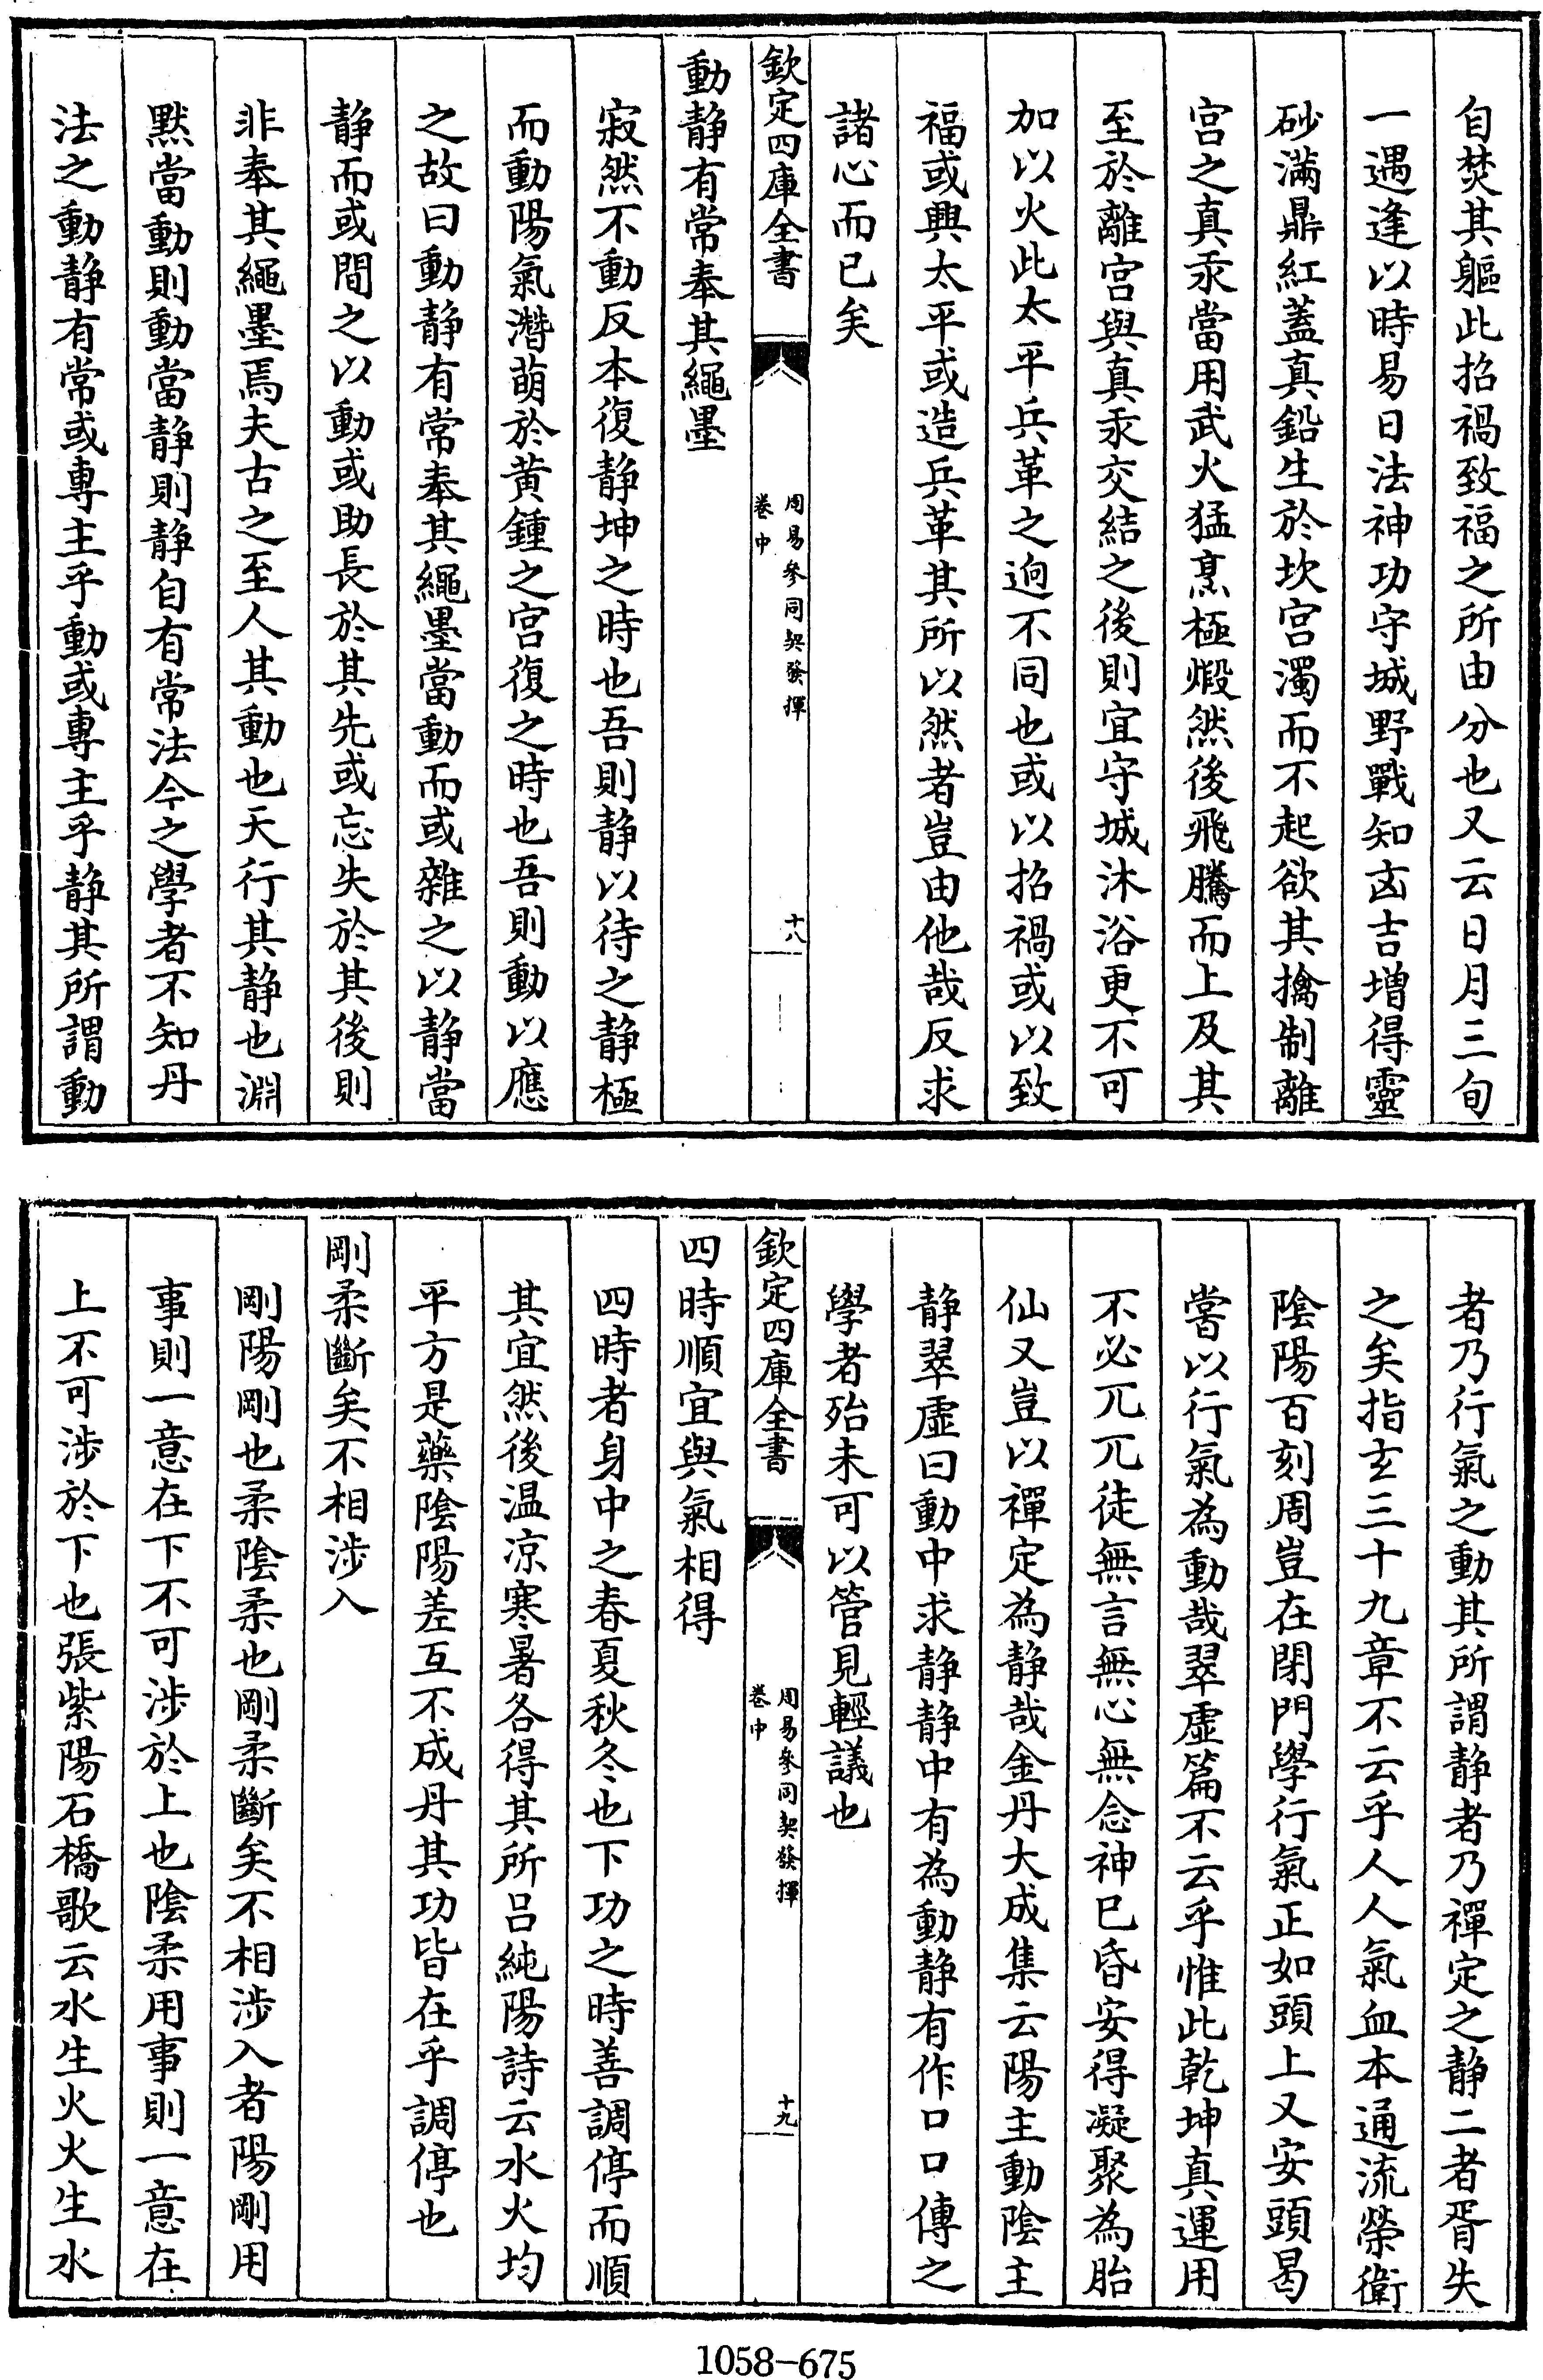 自焚其軀此招禍致福之所由分也又云日月三旬
一遇逢以時易日法神功守城野戰知㐫吉増得靈
砂滿鼎紅蓋真鉛生於坎宫濁而不起欲其擒制離
宫之真汞當用武火猛烹極煅然後飛騰而上及其
至於離宫與真汞交結之後則宜守城沐浴更不可
加以火此太平兵革之逈不同也或以招禍或以致
福或興太平或造兵革其所以然者豈由他哉反求
諸心而已矣
欽定四庫全書
周易參同契發揮
卷中
十八
動静有常奉其繩墨
寂然不動反本復静坤之時也吾則静以待之静極
而動陽氣潛萌於黄鍾之宫復之時也吾則動以應
之故曰動静有常奉其繩墨當動而或雜之以静當
静而或間之以動或助長於其先或忘失於其後則
非奉其繩墨焉夫古之至人其動也天行其静也淵
黙當動則動當静則静自有常法今之學者不知丹
法之動静有常或專主乎動或專主乎静其所謂動
者乃行氣之動其所謂静者乃禪定之静二者胥失
之矣指玄三十九章不云乎人人氣血本通流榮衛
陰陽百刻周豈在閉門學行氣正如頭上又安頭曷
嘗以行氣為動哉翠虚篇不云乎惟此乾坤真運用
不必兀兀徒無言無心無念神已昏安得凝聚為胎
仙又豈以禪定為静哉金丹大成集云陽主動陰主
静翠虚曰動中求静静中有為動静有作口口傳之
學者殆未可以管見輕議也
欽定四庫全書
周易參同契發揮
卷中
十九
四時順宜與氣相得
四時者身中之春夏秋冬也下功之時善調停而順
其宜然後温凉寒暑各得其所吕純陽詩云水火均
平方是藥陰陽差互不成丹其功皆在乎調停也
剛柔斷矣不相涉入
剛陽剛也柔陰柔也剛柔斷矣不相涉入者陽剛用
事則一意在下不可涉於上也陰柔用事則一意在
上不可涉於下也張紫陽石橋歌云水生火火生水
1058-675